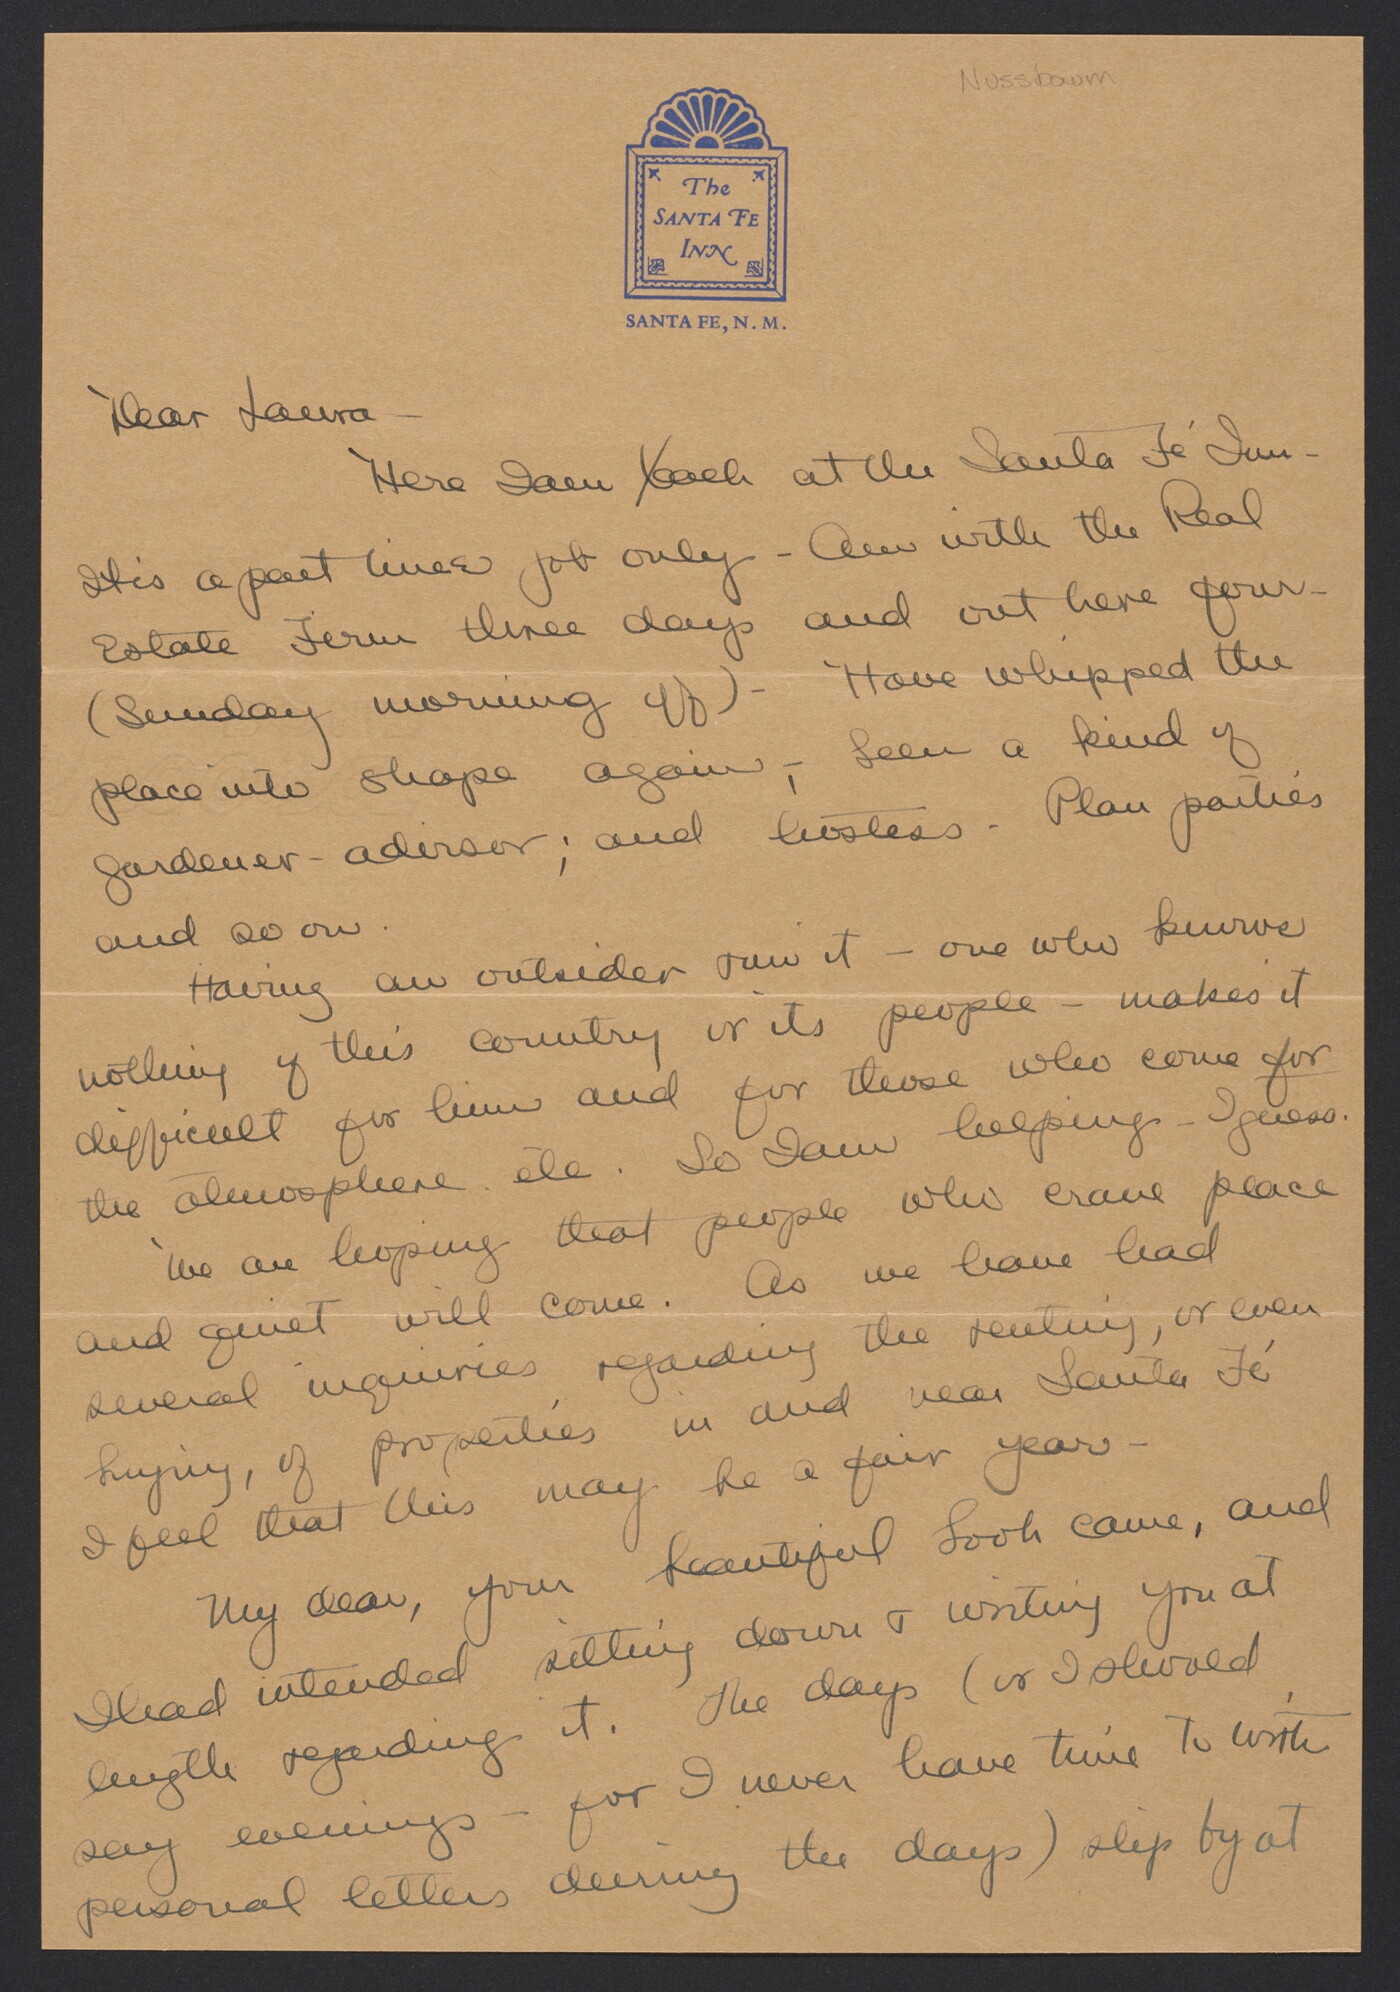 Nussbaum
The
SANTA FE
INN
SANTA FE, N. M.
Dear Laura -
Here I am back at the Santa Fé Inn -
It is a part time job only - Am with the Real
Estate Firm three days and out here four -
(Sunday morning off) - Have whipped the
place into shape again -; been a kind of
gardener - advisor; and hostess - Plan parties
and so on.
Having an outsider run it - one who knows
nothing of this country or its people - makes it
difficult for him and for those who come for
the atmosphere etc. So I am helping - I guess.
We are hoping that people who crave peace
and quiet will come. As we have had
several inquiries regarding the renting, or even
buying, of properties in and near Santa Fé
I feel that this may be a fair year -
My dear, your beautiful book came, and
I had intended sitting down & writing you at
length regarding it. The days (or I should
say evenings - for I never have time to write
personal letters during the days) slip by at